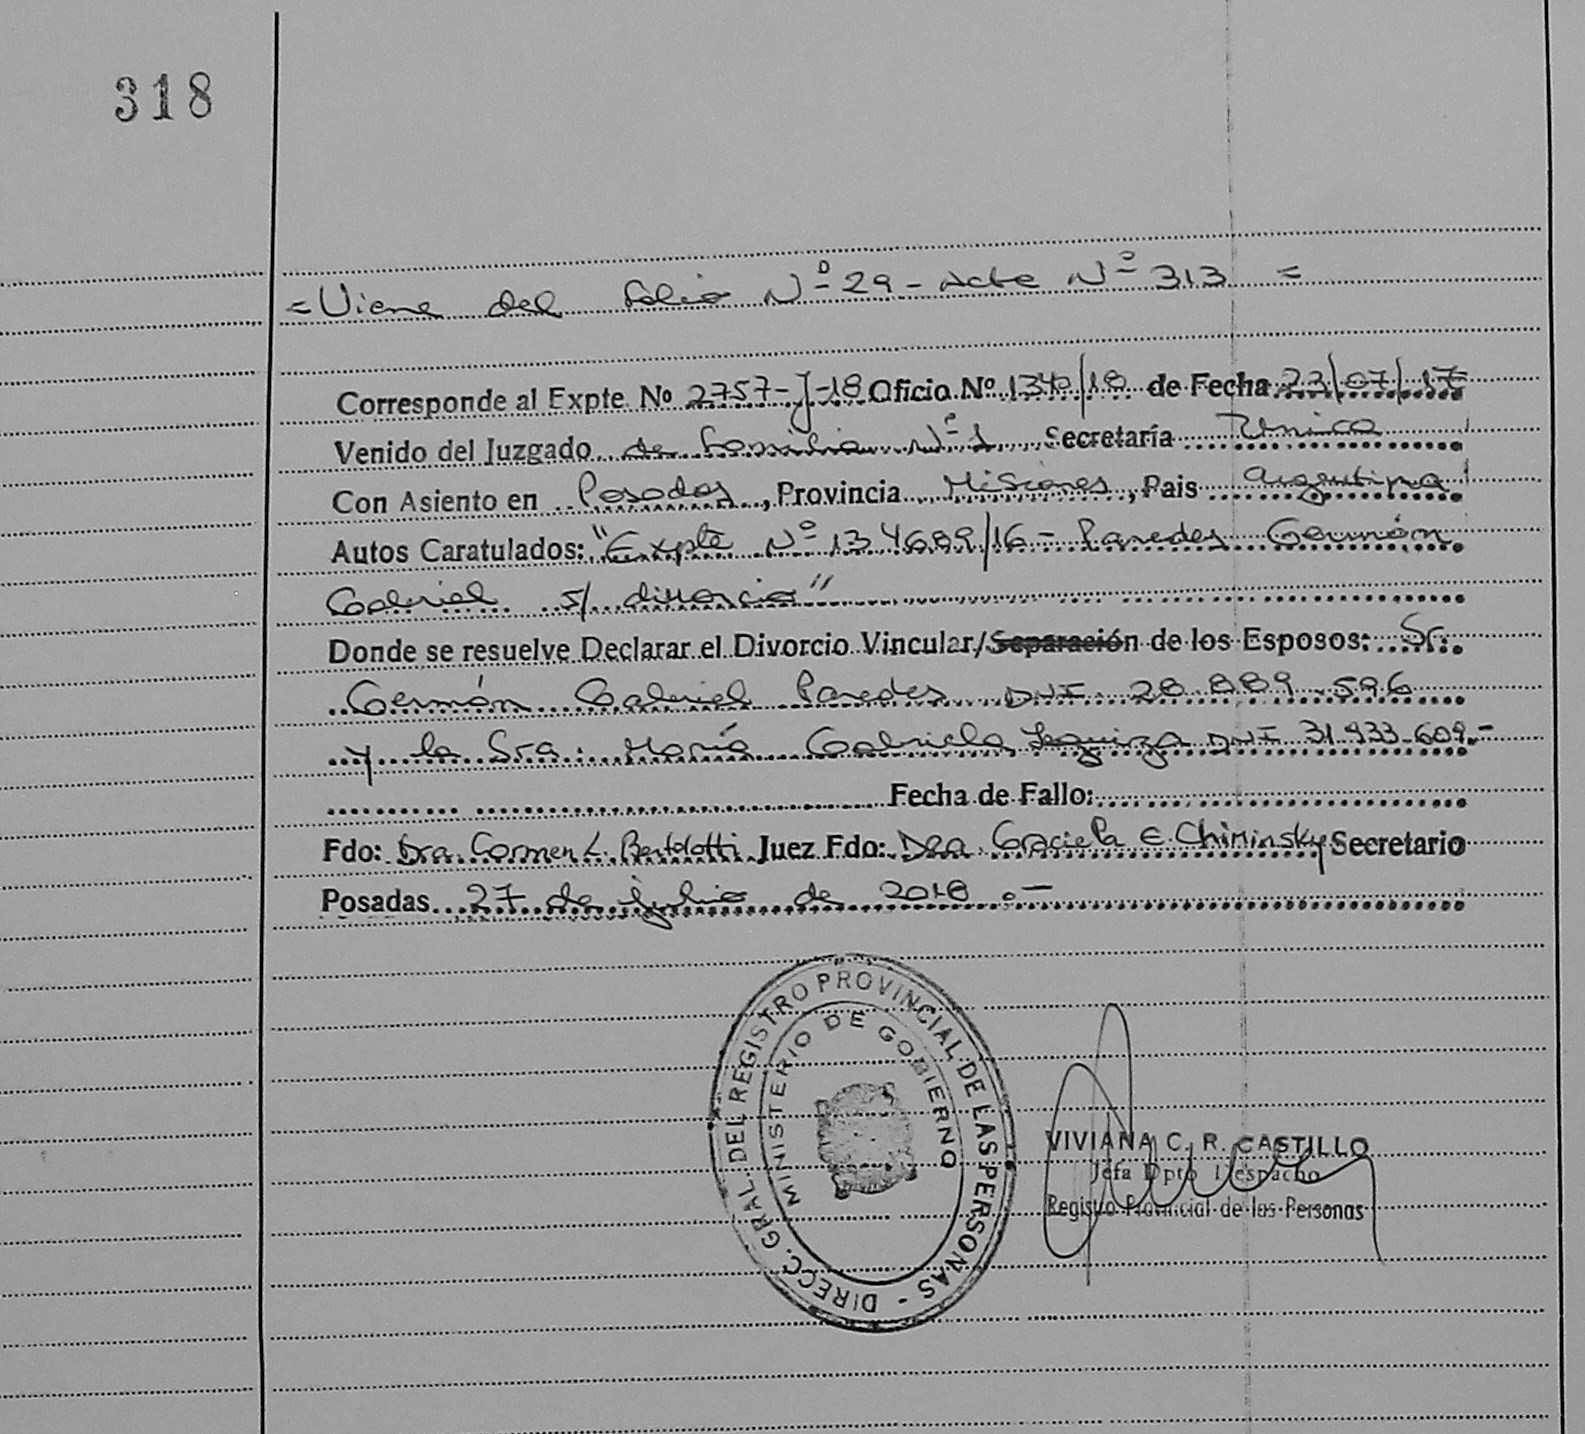 318
= Viene del folio Nº 29 - Acta Nº 313 =
Corresponde al Expte. Nº 2757-J-18 Oficio Nº 1340/18 de Fecha 23/07/17
Venido del Juzgado de Familia Nº 1 Secretaría Unica
Con Asiento en Posadas, Provincia Misiones, Pais Argentina
Autos Caratulados: "Expte Nº 134689/16 - Paredes Germán
Gabriel s/ divorcio"
Donde se resuelve Declarar el Divorcio Vincular/Separación de los Esposos: Sr.
Germán Gabriel Paredes DNI 28.889.596
y la Sra. María Gabriela Leguiza DNI 31.933.609.-
Fecha de Fallo:
Fdo: Dra. Carmen L. Bertolotti Juez Fdo: Dra. Graciela E. Chiminsky Secretario
Posadas 27 de julio de 2018.-
DIRECC. GRAL. DEL REGISTRO PROVINCIAL DE LAS PERSONAS -
MINISTERIO DE GOBIERNO
VIVIANA C. R. CASTILLO
Jefa Dpto Despacho
Registro Provincial de las Personas